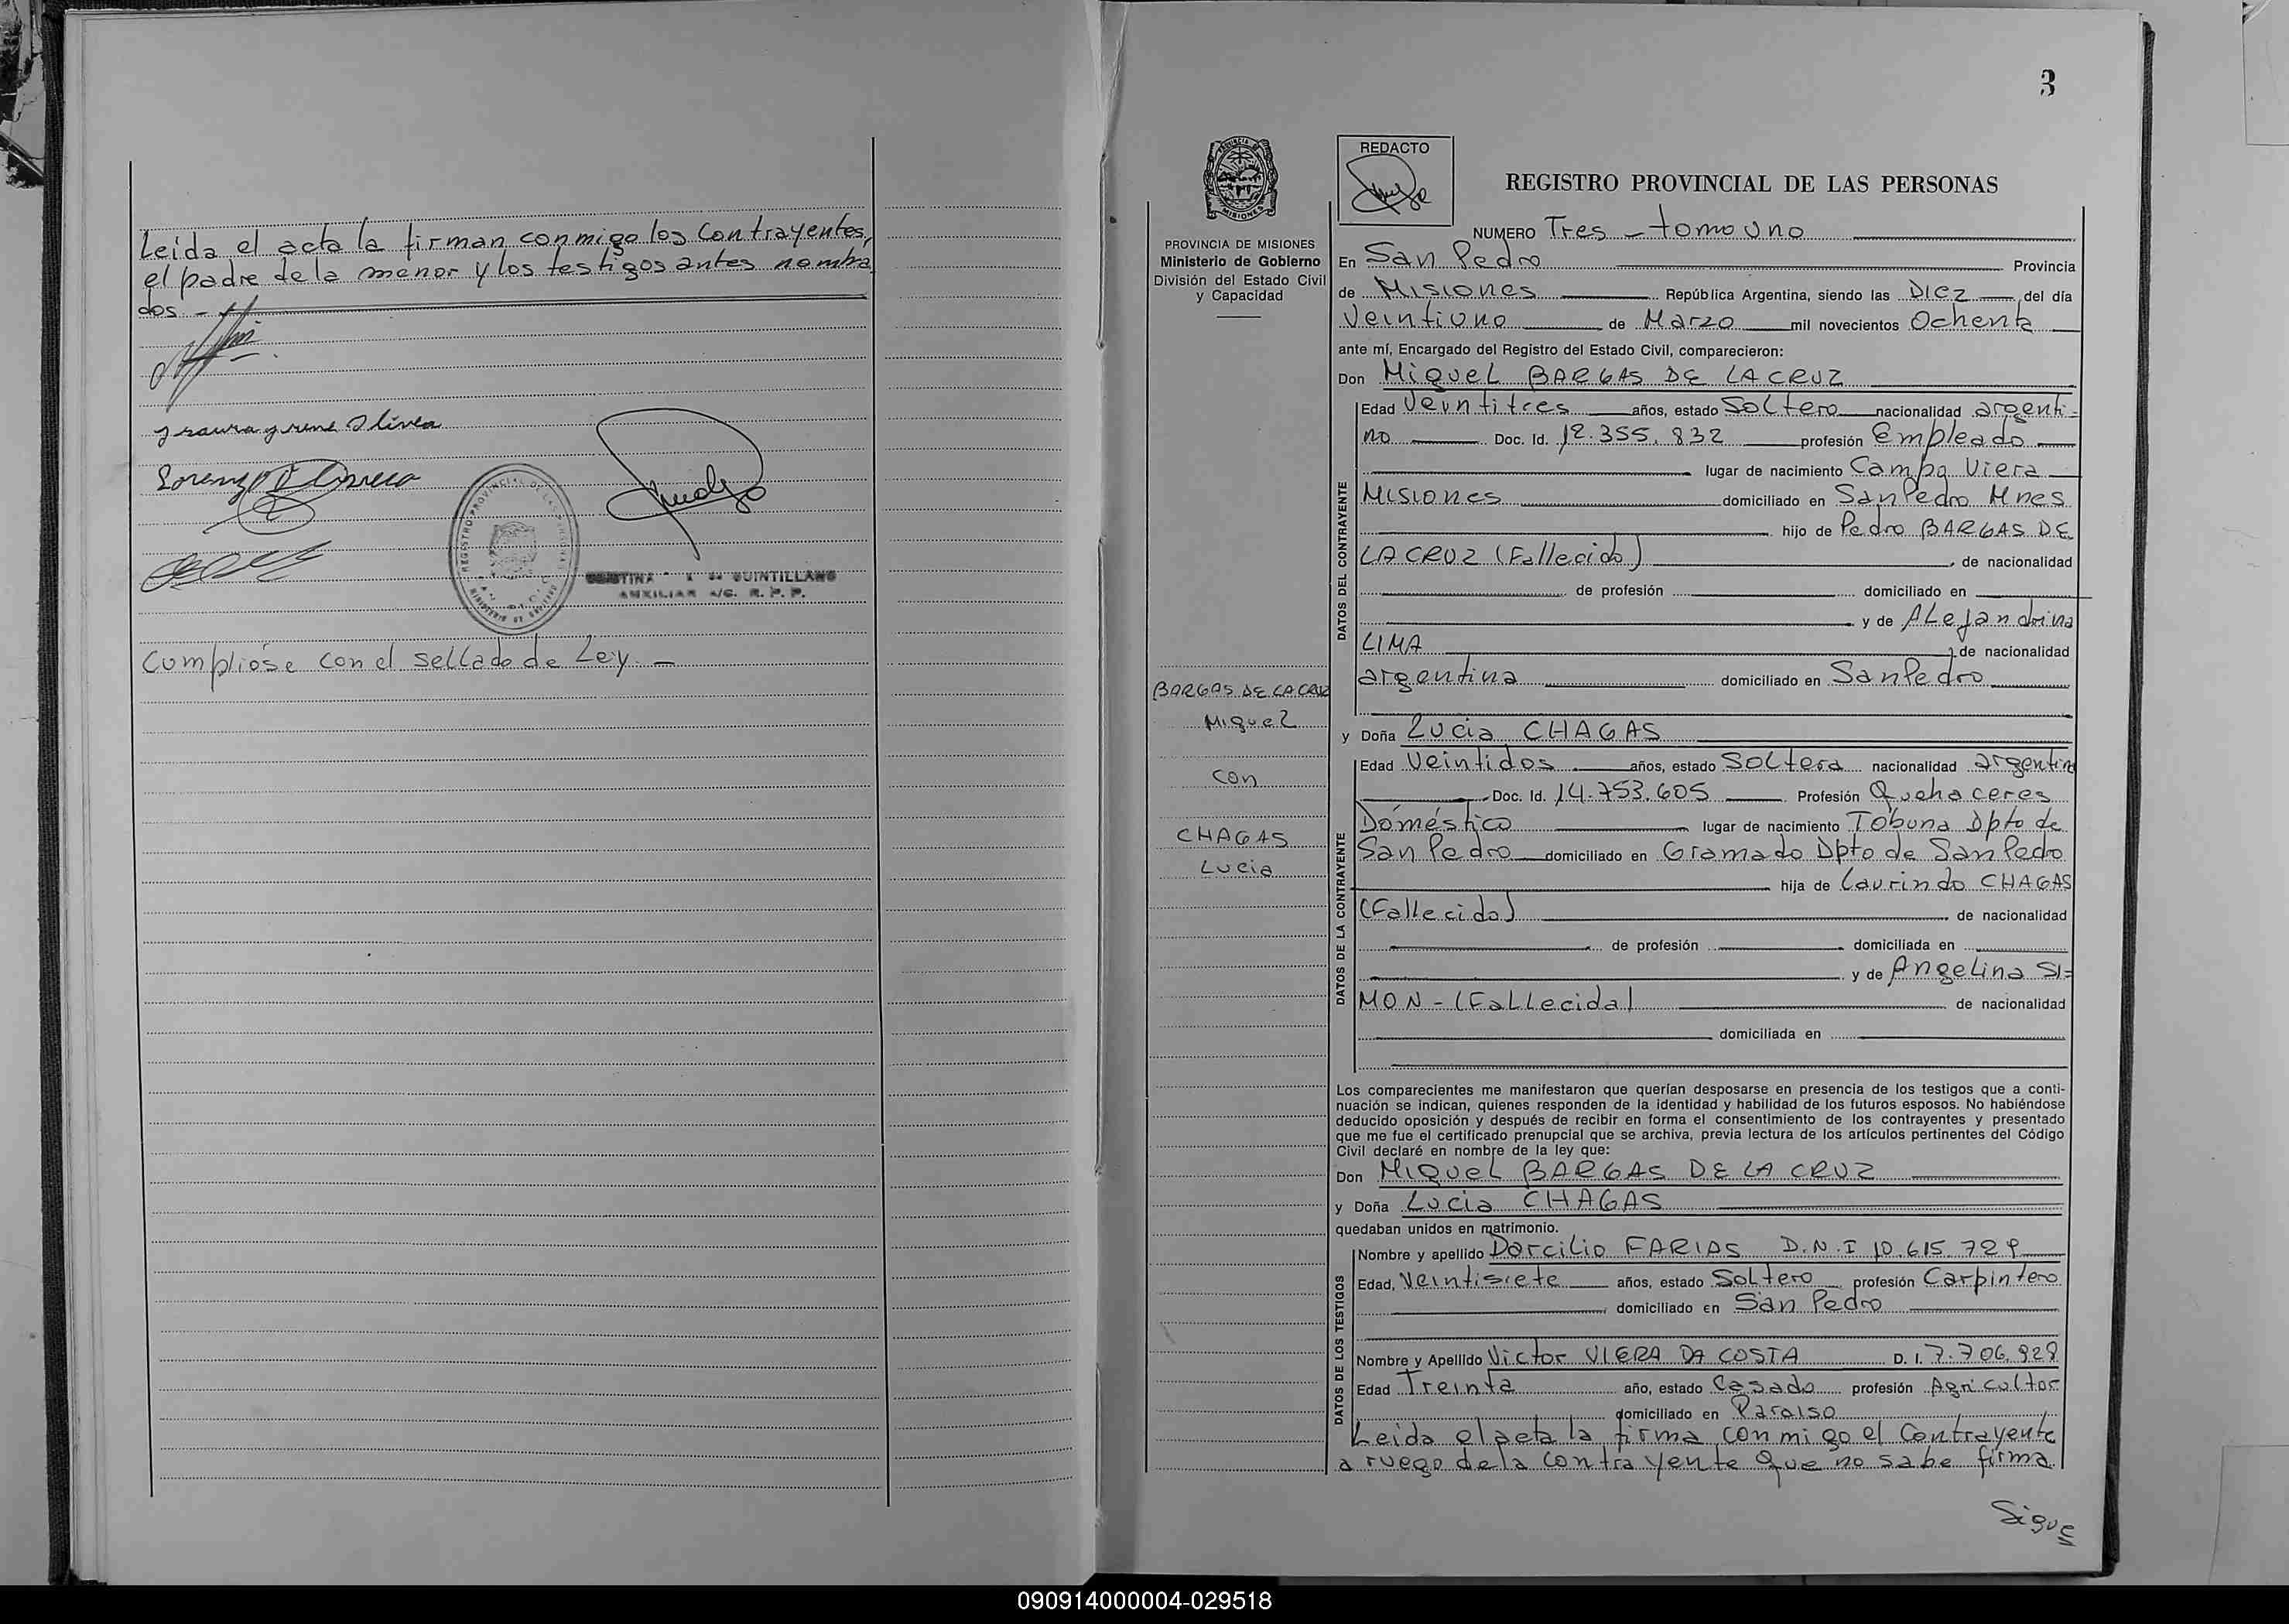 Leida el acta la firman conmigo los contrayentes,
el padre de la menor y los testigos antes nombra
dos -
Lorenzo
REGISTRO PROVINCIAL DE LAS
QUINTILLANO
AUXILIAR A/C. R. P. P.
Cumpliose con el sellado de Ley. -
3
PROVINCIA DE MISIONES
Ministerio de Gobierno
División del Estado Civil
y Capacidad
BARGAS DE LA CRUZ
Miguel
con
CHAGAS
Lucia
REDACTO
REGISTRO PROVINCIAL DE LAS PERSONAS
NUMERO Tres - tomo uno
En San Pedro Provincia
de Misiones República Argentina, siendo las Diez del día
Veintiuno de Marzo mil novecientos Ochenta
ante mí, Encargado del Registro del Estado Civil, comparecieron:
Don Miguel BARGAS DE LA CRUZ
DATOS DEL CONTRAYENTE
Edad Veintitres años, estado Soltero nacionalidad argenti-
no Doc. Id. 12.355.832 profesión Empleado
lugar de nacimiento Campo Viera
Misiones domiciliado en San Pedro Mnes
hijo de Pedro BARGAS DE
LA CRUZ (Fallecido) de nacionalidad
de profesión domiciliado en
y de Alejandrina
LIMA de nacionalidad
argentina domiciliado en San Pedro
y Doña Lucia CHAGAS
DATOS DE LA CONTRAYENTE
Edad Veintidos años, estado Soltera nacionalidad argentina
Doc. Id. 14.753.605 Profesión Quehaceres
Doméstico lugar de nacimiento Tobuna Dpto de
San Pedro domiciliado en Gramado Dpto de San Pedro
hija de Laurindo CHAGAS
(Fallecido) de nacionalidad
de profesión domiciliada en
y de Angelina SI=
MON - (Fallecida) de nacionalidad
domiciliada en
Los comparecientes me manifestaron que querían desposarse en presencia de los testigos que a conti-
nuación se indican, quienes responden de la identidad y habilidad de los futuros esposos. No habiéndose
deducido oposición y después de recibir en forma el consentimiento de los contrayentes y presentado
que me fue el certificado prenupcial que se archiva, previa lectura de los artículos pertinentes del Código
Civil declaré en nombre de la ley que:
Don Miguel BARGAS DE LA CRUZ
y Doña Lucia CHAGAS
quedaban unidos en matrimonio.
DATOS DE LOS TESTIGOS
Nombre y apellido Darcilio FARIAS D.N.I 10.615.729
Edad, Veintisiete años, estado Soltero profesión Carpintero
domiciliado en San Pedro
Nombre y Apellido Victor VIERA DA COSTA D. I. 7.706.928
Edad Treinta año, estado Casado profesión Agricultor
domiciliado en Paraiso
Leida el acta la firma conmigo el Contrayente
a ruego de la contrayente que no sabe firma
Sigue
090914000004-029518